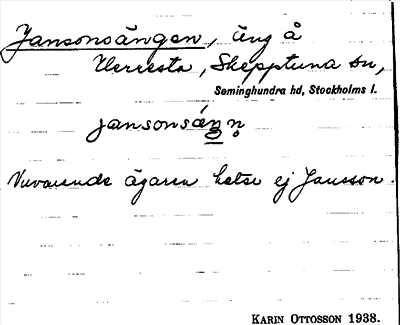 Jansonsängen, äng å
Herresta, Skepptuna sn,
Seminghundra hd, Stockholms l.
jansonsáŋn̥
Nuvarande ägaren heter ej Jansson.
KARIN OTTOSSON 1938.